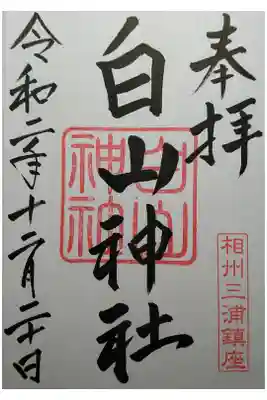 奉拝
相州三浦鎮座
白山神社
令和二年十二月二十日